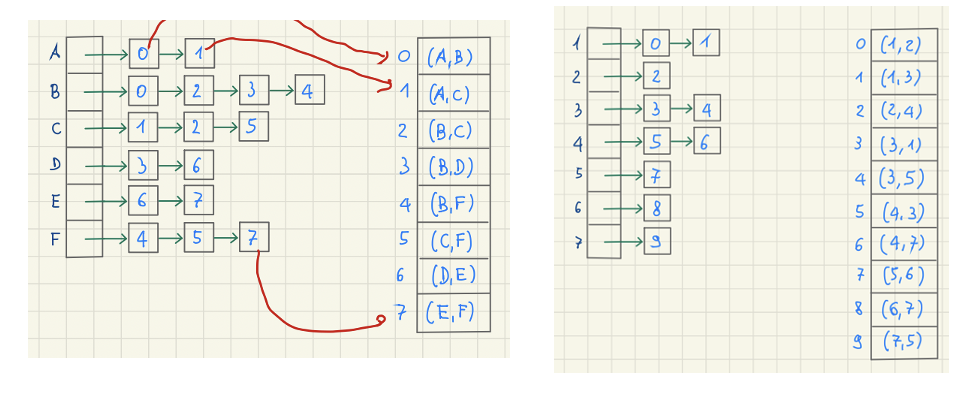 A 0 1
B 0 2 3 4
C 1 2 5
D 3 6
E 6 7
F 4 5 7
0 (A,B)
1 (A,C)
2 (B,C)
3 (B,D)
4 (B,F)
5 (C,F)
6 (D,E)
7 (E,F)
1 0 1
2 2
3 3 4
4 5 6
5 7
6 8
7 9
0 (1,2)
1 (1,3)
2 (2,4)
3 (3,1)
4 (3,5)
5 (4,3)
6 (4,7)
7 (5,6)
8 (6,7)
9 (7,5)